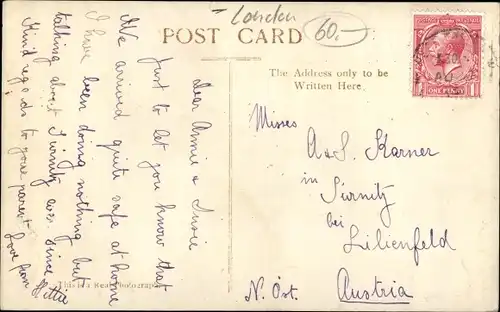 London
60.-
POST CARD
The Address only to be
Written Here.
ONE PENNY
Dear Annie & Susie
Just to let you know that
We arrived quite safe at home
I have been doing nothing but
talking about Türnitz ever since
Kind regards to your parents
Love from Hettie
This is a Real Photograph
Misses
A & S. Karner
in Türnitz
bei
Lilienfeld
N. Öst.
Austria